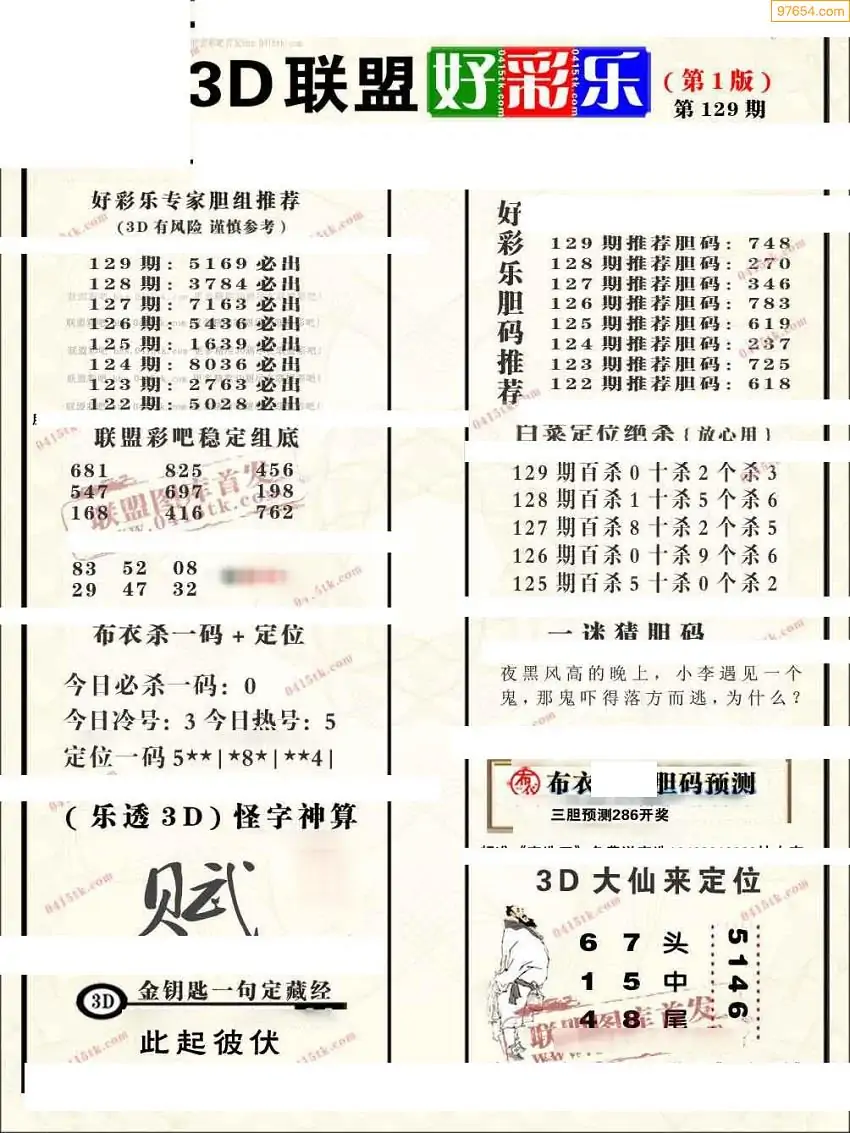 97654.com
3D联盟好彩乐
(第1版)
第129期
好彩乐专家胆组推荐
(3D有风险 谨慎参考)
129期：5169必出
128期：3784必出
127期：7163必出
126期：5436必出
125期：1639必出
124期：8036必出
123期：2763必出
122期：5028必出
联盟彩吧稳定组底
681 825 456
547 697 198
168 416 762
83 52 08
29 47 32
布衣杀一码+定位
今日必杀一码：0
今日冷号：3 今日热号：5
定位一码5**|*8*|**4|
(乐透3D)怪字神算
赋
3D 金钥匙一句定藏经
此起彼伏
好彩乐胆码推荐
129期推荐胆码：748
128期推荐胆码：270
127期推荐胆码：346
126期推荐胆码：783
125期推荐胆码：619
124期推荐胆码：237
123期推荐胆码：725
122期推荐胆码：618
白菜定位绝杀{放心用}
129期百杀0十杀2个杀3
128期百杀1十杀5个杀6
127期百杀8十杀2个杀5
126期百杀0十杀9个杀6
125期百杀5十杀0个杀2
一迷猜胆码
夜黑风高的晚上，小李遇见一个
鬼，那鬼吓得落方而逃，为什么？
布衣 胆码预测
三胆预测286开奖
3D大仙来定位
6 7 头
1 5 中
4 8 尾
5146
联盟图库首发
www.0415tk.com
0415tk.com